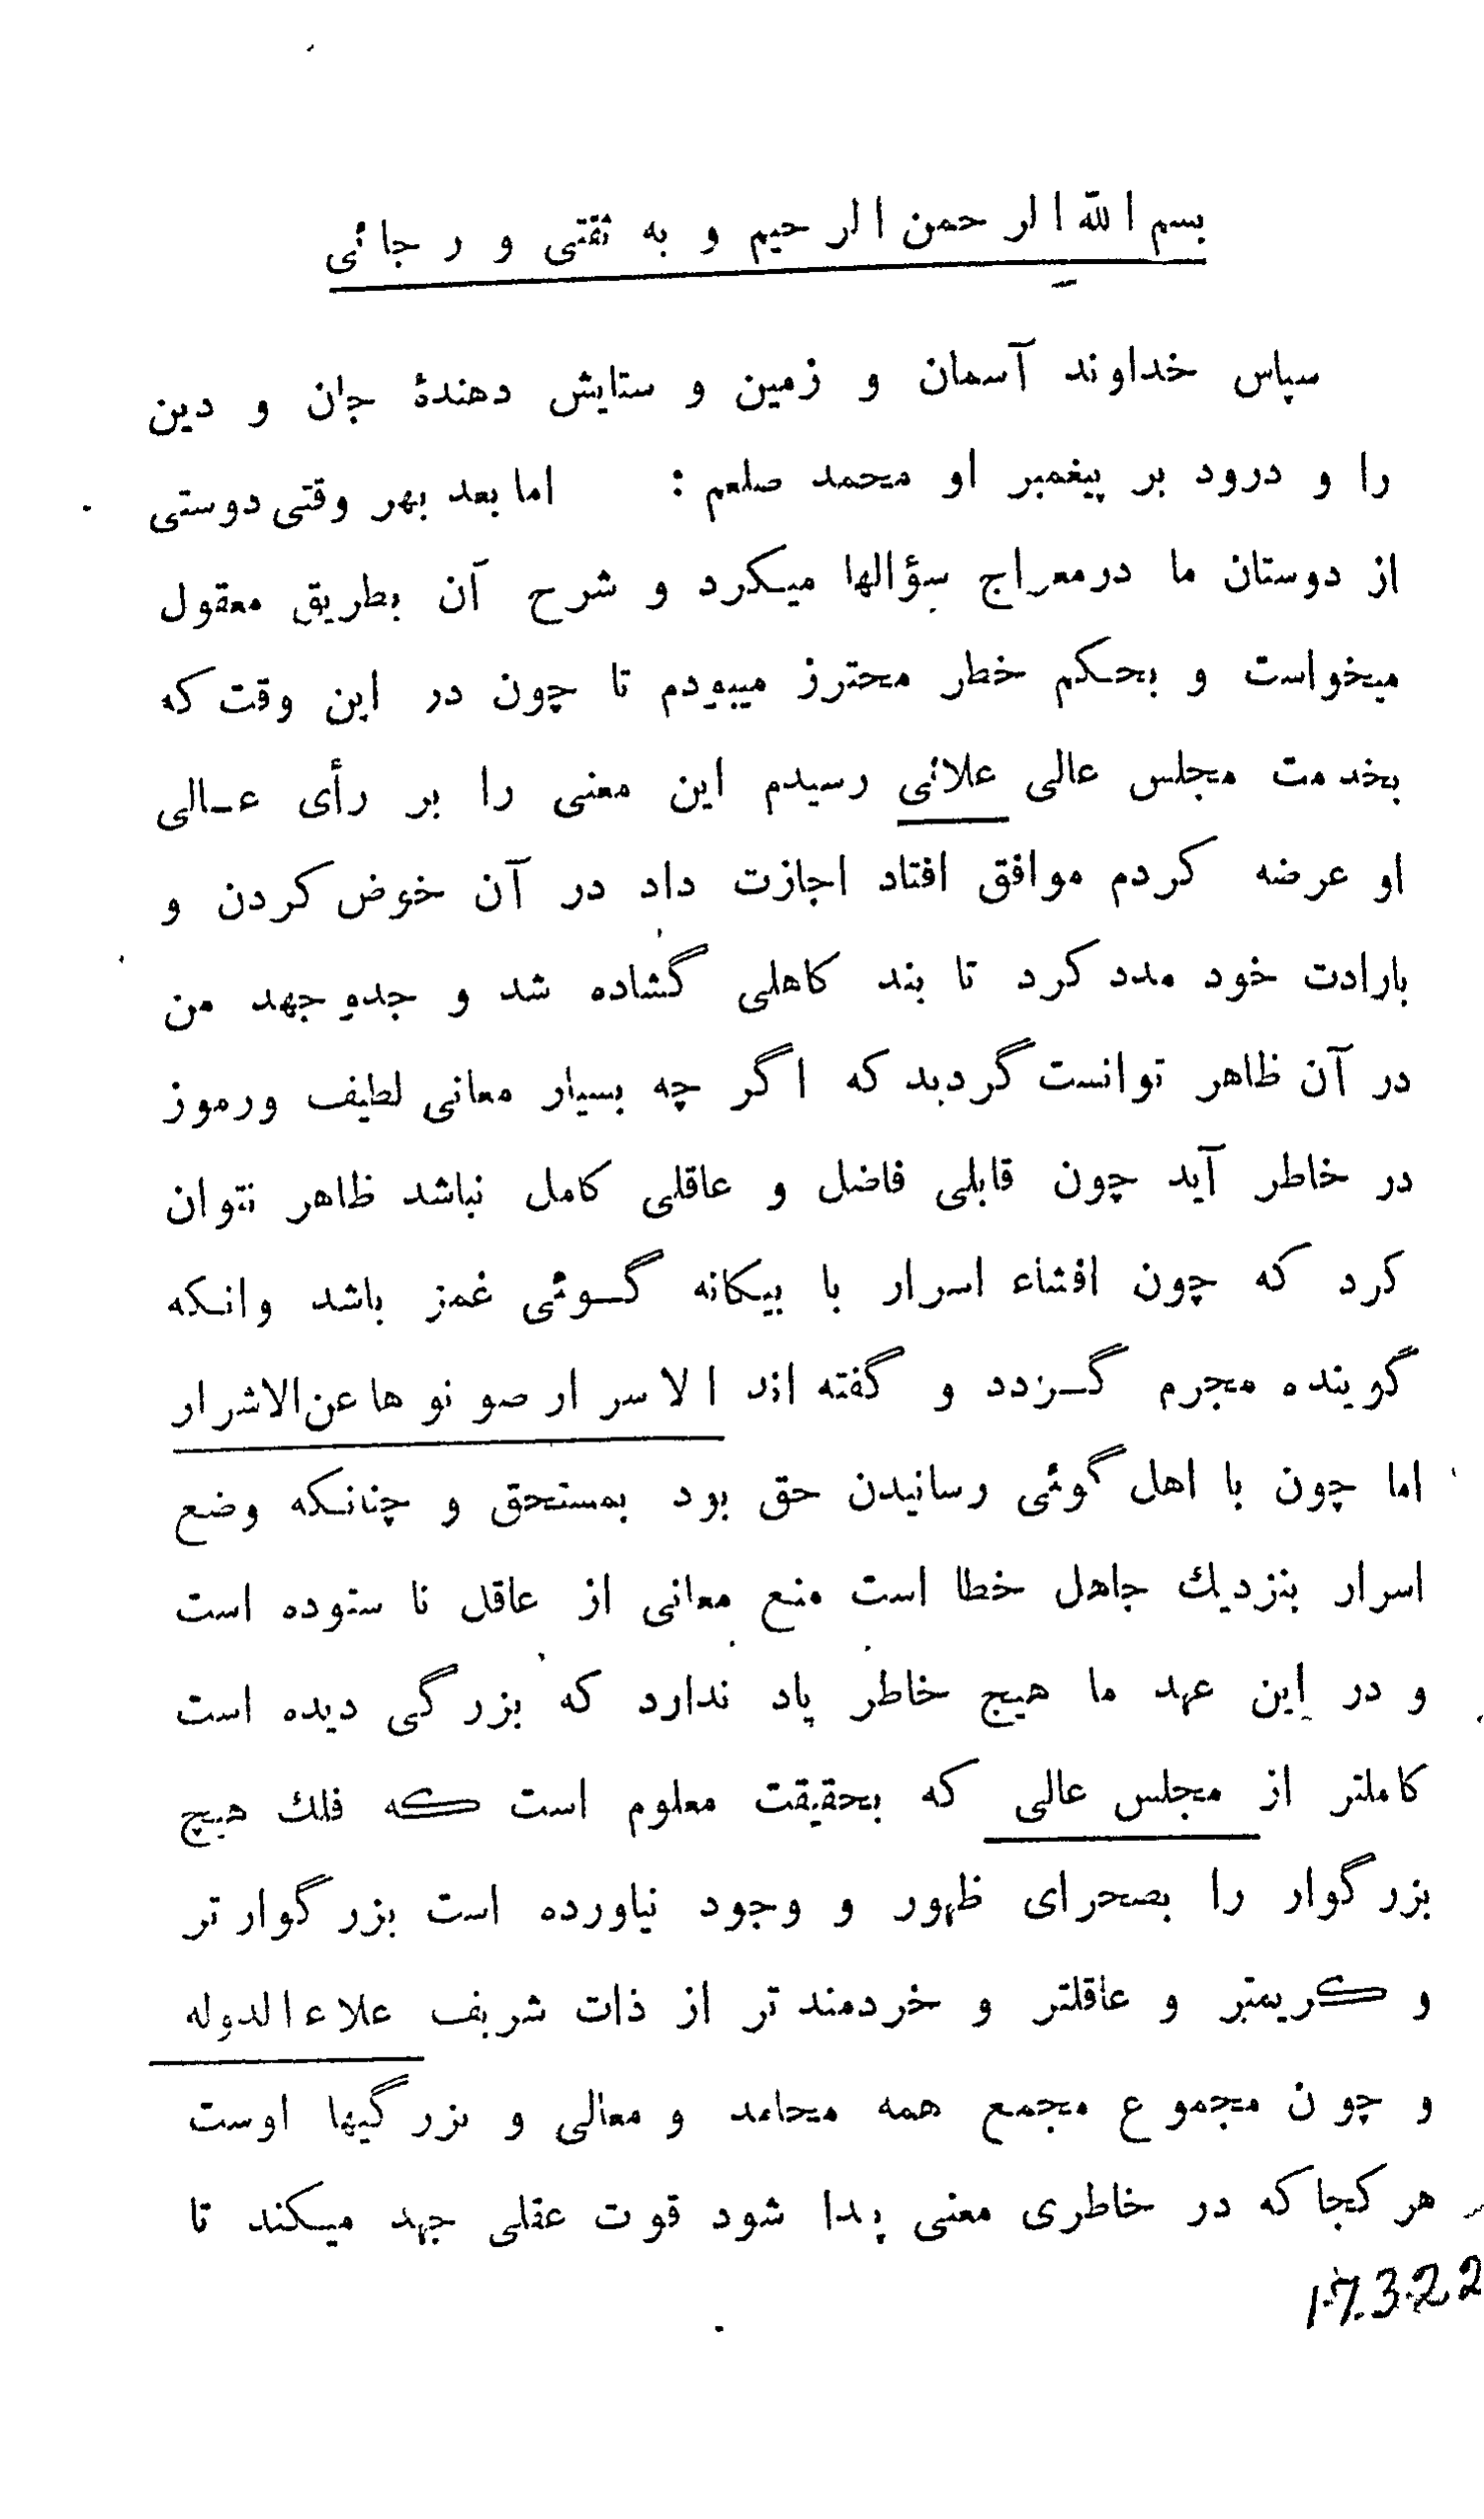 بسم الله الرحمن الرحيم و به ثقتى و رجائى
سپاس خداوند آسمان و زمین و ستایش دهندهٔ جان و دین
را و درود بر پیغمبر او محمد صلعم : اما بعد بهر وقتی دوستی
از دوستان ما در معراج سؤالها میکرد و شرح آن بطریق معقول
میخواست و بحکم خطر محترز میبودم تا چون در این وقت که
بخدمت مجلس عالی علائی رسیدم این معنی را بر رأی عالی
او عرضه کردم موافق افتاد اجازت داد در آن خوض کردن و
بارادت خود مدد کرد تا بند کاهلی گشاده شد و جدو جهد من
در آن ظاهر توانست گردید که اگر چه بسیار معانی لطیف ورموز
در خاطر آید چون قابلی فاضل و عاقلی کامل نباشد ظاهر نتوان
کرد که چون افشاء اسرار با بیکانه گوئی غمز باشد وانکه
گوینده مجرم گردد و گفته اند الاسرار صونوها عن الاشرار
اما چون با اهل گوئی رسانیدن حق بود بمستحق و چنانکه وضع
اسرار بنزدیك جاهل خطا است منع معانی از عاقل نا ستوده است
و در این عهد ما هیچ خاطر یاد ندارد که بزرگی دیده است
کاملتر از مجلس عالی که بحقیقت معلوم است که فلك هیچ
بزرگوار را بصحرای ظهور و وجود نیاورده است بزرگوارتر
و کریمتر و عاقلتر و خردمند تر از ذات شریف علاءالدوله
و چون مجموع مجمع همه محامد و معالی و بزرگیها اوست
هر کجا که در خاطری معنی پیدا شود قوت عقلی جهد میکند تا
17322